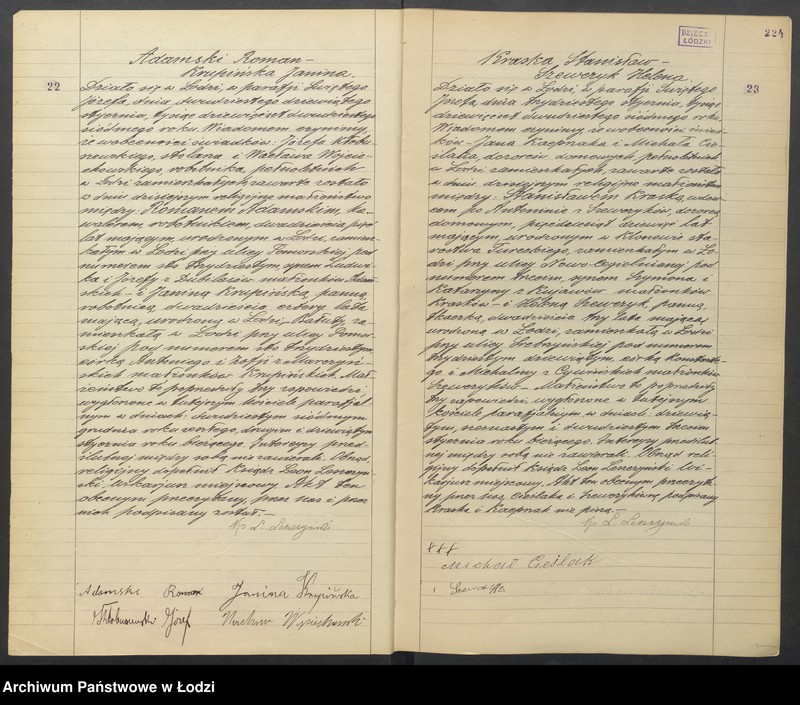 Adamski Roman –
Krupińska Janina.
22
Działo się w Łodzi, w parafji Świętego
Józefa, dnia dwudziestego dziewiątego
stycznia, tysiąc dziewięćset dwudziestego
siódmego roku. Wiadomem czynimy,
że w obecności świadków: Józefa
stolarza i Wacława Wojcie-
chowskiego, robotnika, pełnoletnich
w Łodzi zamieszkałych, zawarte zostało
w dniu dzisiejszym religijne małżeństwo
między: Romanem Adamskim, ka-
walerem, robotnikiem, dwadzieścia pięć
lat mającym, urodzonym w Łodzi, zamiesz-
kałym w Łodzi przy ulicy Pomorskiej pod
numerem sto trzydziestym, synem Ludwi-
ka i Józefy z małżonków Adam-
skich – i Janiną Krupińską, panną,
robotnicą, dwadzieścia cztery lata
mającą, urodzoną w Łodzi – Bałuty, za-
mieszkałą w Łodzi przy ulicy Pomor-
skiej pod numerem sto trzydziestym,
córką Antoniego i Zofji z
małżonków Krupińskich. Mał-
żeństwo to poprzedziły trzy zapowiedzi
wygłoszone w tutejszym kościele parafjal-
nym w dniach: dwudziestym siódmym
grudnia roku zeszłego, drugim i dziewiątym
stycznia roku bieżącego. Intercyzy przed-
ślubnej między sobą nie zawierali. Obrząd
religijny dopełnił Ksiądz Leon Leszczyń-
ski, wikarjusz miejscowy. Akt ten
obecnym przeczytany, przez nas i przez
nich podpisany został. –
Ks. L. Leszczyński
Adamski Roman Janina Krupińska
Józef Wacław Wojciechowski
DZIEKA.
ŁÓDZKI
224
Kraska Stanisław –
Szewczyk Helena.
23
Działo się w Łodzi, w parafji Świętego
Józefa, dnia trzydziestego stycznia, tysiąc
dziewięćset dwudziestego siódmego roku.
Wiadomem czynimy, że w obecności świad-
ków: Jana Kacprzaka i Michała Cie-
ślaka, dozorców domowych, pełnoletnich
w Łodzi zamieszkałych, zawarte zostało
w dniu dzisiejszym religijne małżeństwo
między: Stanisławem Kraską, wdow-
cem po Antoninie z Szewczyków, dozorcą
domowym, pięćdziesiąt dziewięć lat
mającym, urodzonym w sta-
rostwa Tureckiego, zamieszkałym w Ło-
dzi przy ulicy Nowo-Cegielnianej pod
numerem trzecim, synem Szymona i
Katarzyny z Kujawów małżonków
Krasków – i Heleną Szewczyk, panną,
tkaczką, dwadzieścia trzy lata mającą,
urodzoną w Łodzi, zamieszkałą w Łodzi
przy ulicy Srebrzyńskiej pod numerem
trzydziestym dziewiątym, córką Konstante-
go i Michaliny z małżonków
Szewczyków. – Małżeństwo to poprzedziły
trzy zapowiedzi, wygłoszone w tutejszym
kościele parafjalnym, w dniach: dziewią-
tym, szesnastym i dwudziestym trzecim
stycznia roku bieżącego. Intercyzy przedślub-
nej między sobą nie zawierali. Obrząd reli-
gijny dopełnił Ksiądz Leon Leszczyński wi-
karjusz miejscowy. Akt ten obecnym przeczyta-
ny przez nas, Cieślaka i Szewczykównę podpisany
Kraska i Kacprzak nie piszą. –
Ks. L. Leszczyński
+++
Michał Cieślak
Archiwum Państwowe w Łodzi